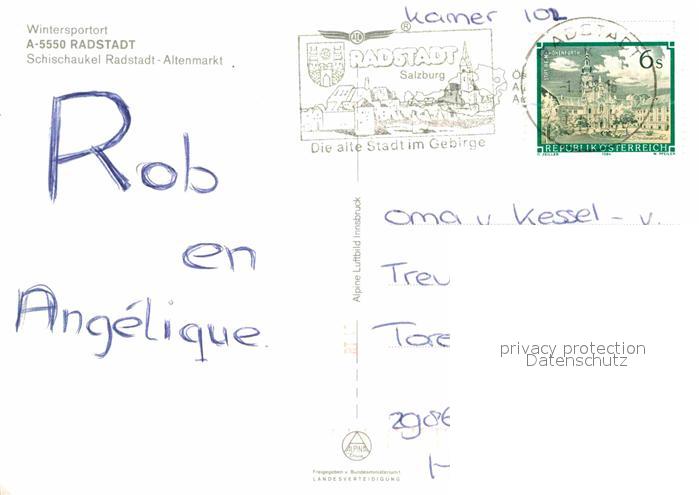 Wintersportort
A-5550 RADSTADT
Schischaukel Radstadt - Altenmarkt
Rob
en
Angélique.
Kamer 102
RADSTADT
Salzburg
Die alte Stadt im Gebirge
RADSTADT
6s
REPUBLIK ÖSTERREICH
1984
Alpine Luftbild Innsbruck
oma v Kessel - v.
Treu
Tore
2986
privacy protection
Datenschutz
ALPINE
Freigegeben v. Bundesministerium f.
LANDESVERTEIDIGUNG